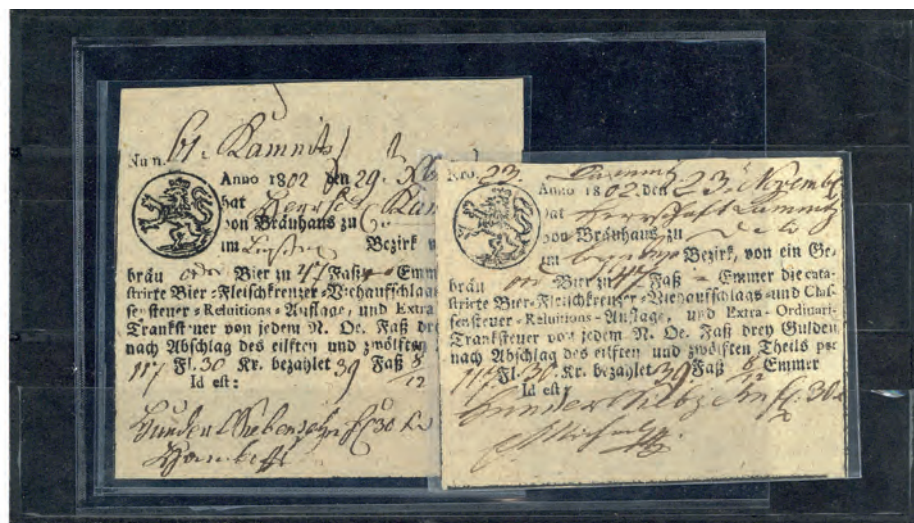 Num. 61. Kamnitz
Anno 1802 den 29.
hat Herrschaft Kam
von Bräuhaus zu
im Bezirk
bräu ord Bier zu 47 Faß Emm
strirte Bier-Fleischkreuzer-Viehaufschlag
sensteuer-Reluitions-Auflage, und Extra
Tranksteuer von jedem N. Oe. Faß dre
nach Abschlag des eilften und zwölften
117 Fl. 30 Kr. bezahlet 39 Faß 8/12
Id est:
Hundert Siebenzehn fl 30 kr
Nro. 23. Kamnitz
Anno 1802. den 23. Novemb
hat Herrschaft Kamnitz
von Bräuhaus zu
im Bezirk, von ein Ge-
bräu ord Bier zu 47 Faß Emmer die cata-
strirte Bier-Fleischkreuzer-Viehaufschlags-und Clas-
sensteuer-Reluitions-Auflage, und Extra-Ordinari-
Tranksteuer von jedem N. Oe. Faß drey Gulden
nach Abschlag des eilften und zwölften Theils per
117 Fl. 30 Kr. bezahlet 39. Faß Emmer
Id est
Hundert Siebzehn fl. 30 k